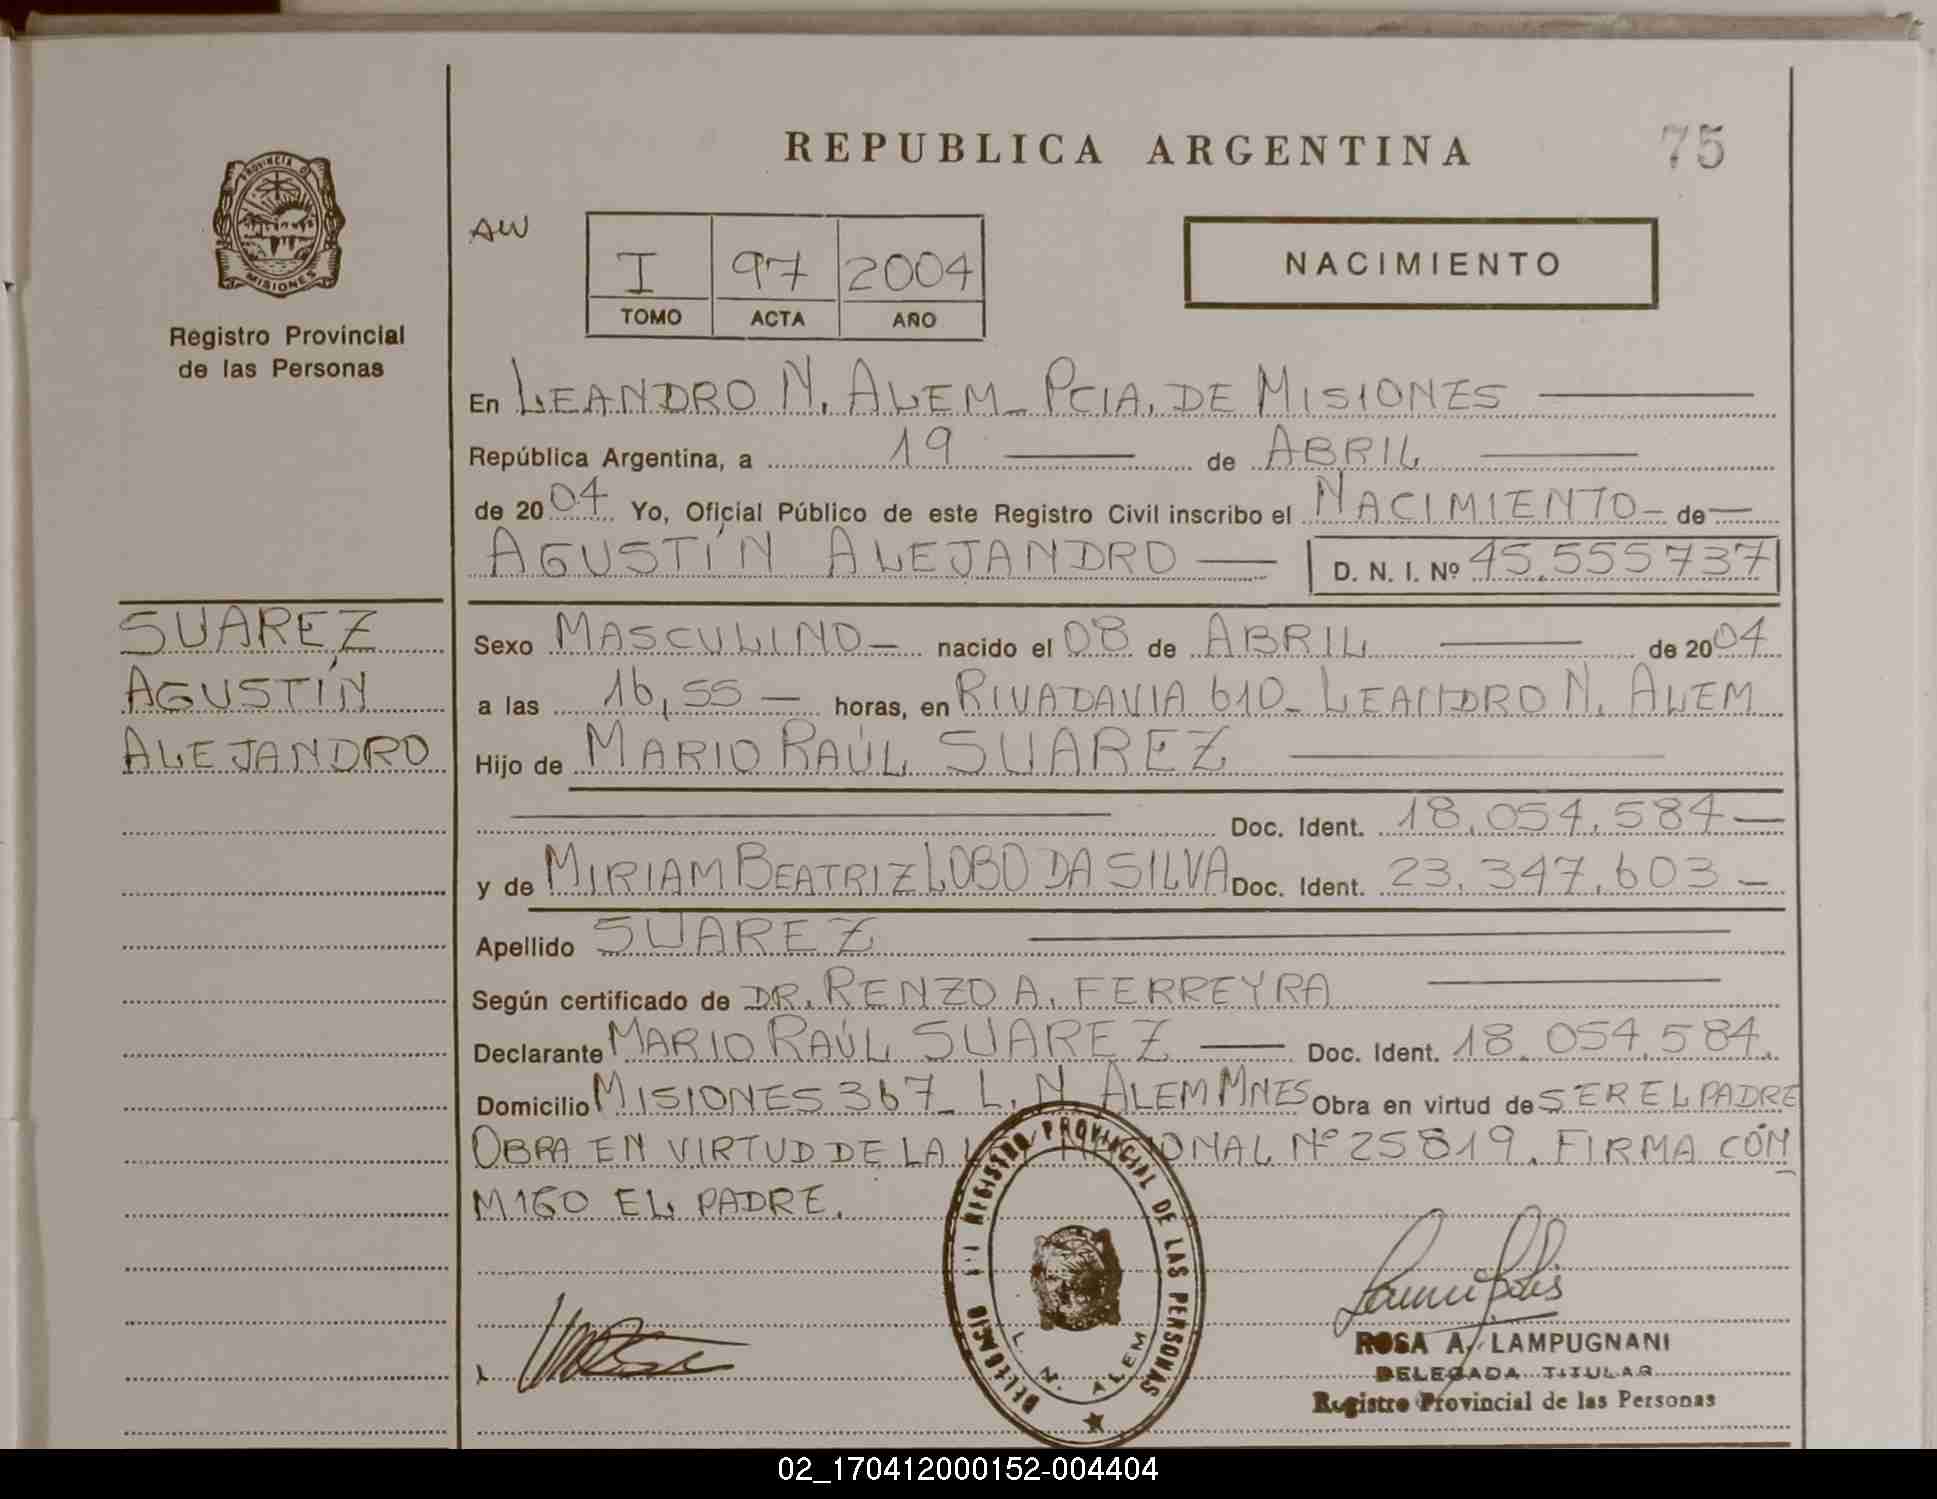 REPUBLICA ARGENTINA
75
PROVINCIA D
MISIONES
Registro Provincial
de las Personas
AW
I 97 2004
TOMO ACTA AÑO
NACIMIENTO
En LEANDRO N. ALEM_ PCIA. DE MISIONES
República Argentina, a 19 de ABRIL
de 2004 Yo, Oficial Público de este Registro Civil inscribo el NACIMIENTO - de
AGUSTÍN ALEJANDRO D. N. I. Nº 45.555737
SUAREZ
AGUSTÍN
ALEJANDRO
Sexo MASCULINO - nacido el 08 de ABRIL de 2004
a las 16,55 - horas, en RIVADAVIA 610_ LEANDRO N. ALEM
Hijo de MARIO RAÚL SUAREZ
Doc. Ident. 18.054.584
y de MIRIAM BEATRIZ LOBO DA SILVA Doc. Ident. 23.347.603 -
Apellido SUAREZ
Según certificado de DR. RENZO A. FERREYRA
Declarante MARIO RAÚL SUAREZ Doc. Ident. 18.054.584.
Domicilio MISIONES 367_ L. N. ALEM MNES Obra en virtud de SER EL PADRE
OBRA EN VIRTUD DE LA Nº 25819. FIRMA CON
MIGO EL PADRE.
REGISTRO PROVINCIAL DE LAS PERSONAS
L. N. ALEM
ROSA A. LAMPUGNANI
DELEGADA TITULAR
Registro Provincial de las Personas
02_170412000152-004404